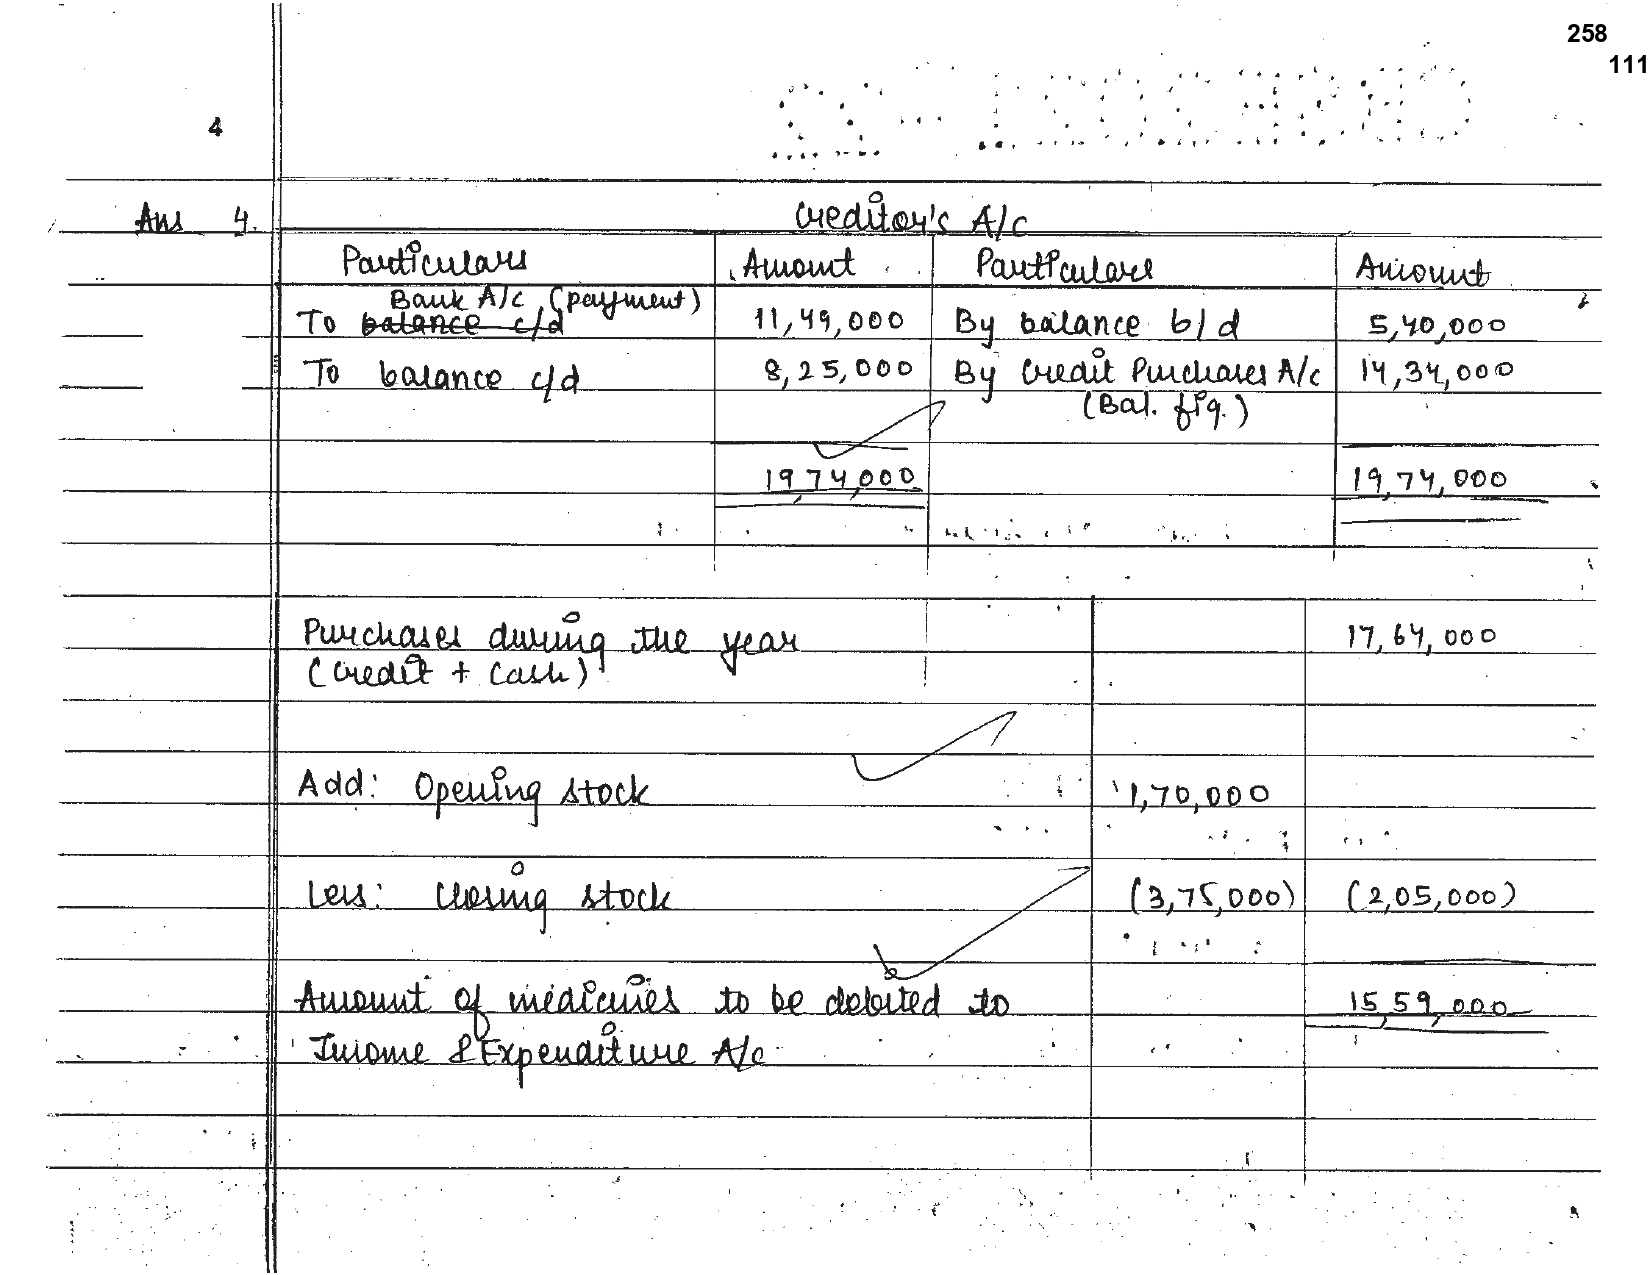 258
111
4
Ans 4.
Creditor's A/c
Particulars Amount Particulars Amount
Bank A/c (payment)
To balance c/d 11,49,000 By balance b/d 5,40,000
To balance c/d 8,25,000 By Credit Purchases A/c 14,34,000
(Bal. fig.)
19,74,000 19,74,000
Purchases during the year 17,64,000
(Credit + Cash)
Add: Opening stock 1,70,000
Less: Closing stock (3,75,000) (2,05,000)
Amount of medicines to be debited to 15,59,000
Income & Expenditure A/c